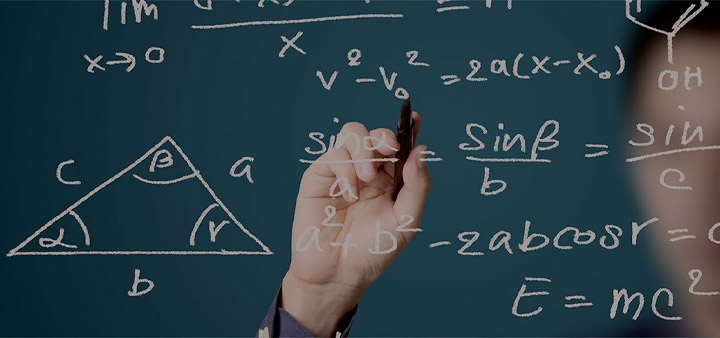 lim
x→0
x
v²-v₀²=2a(x-x₀)
OH
sinα/a = sinβ/b = sin/c
c β a
α r
b
a²+b²-2abcosr=c
E=mc²